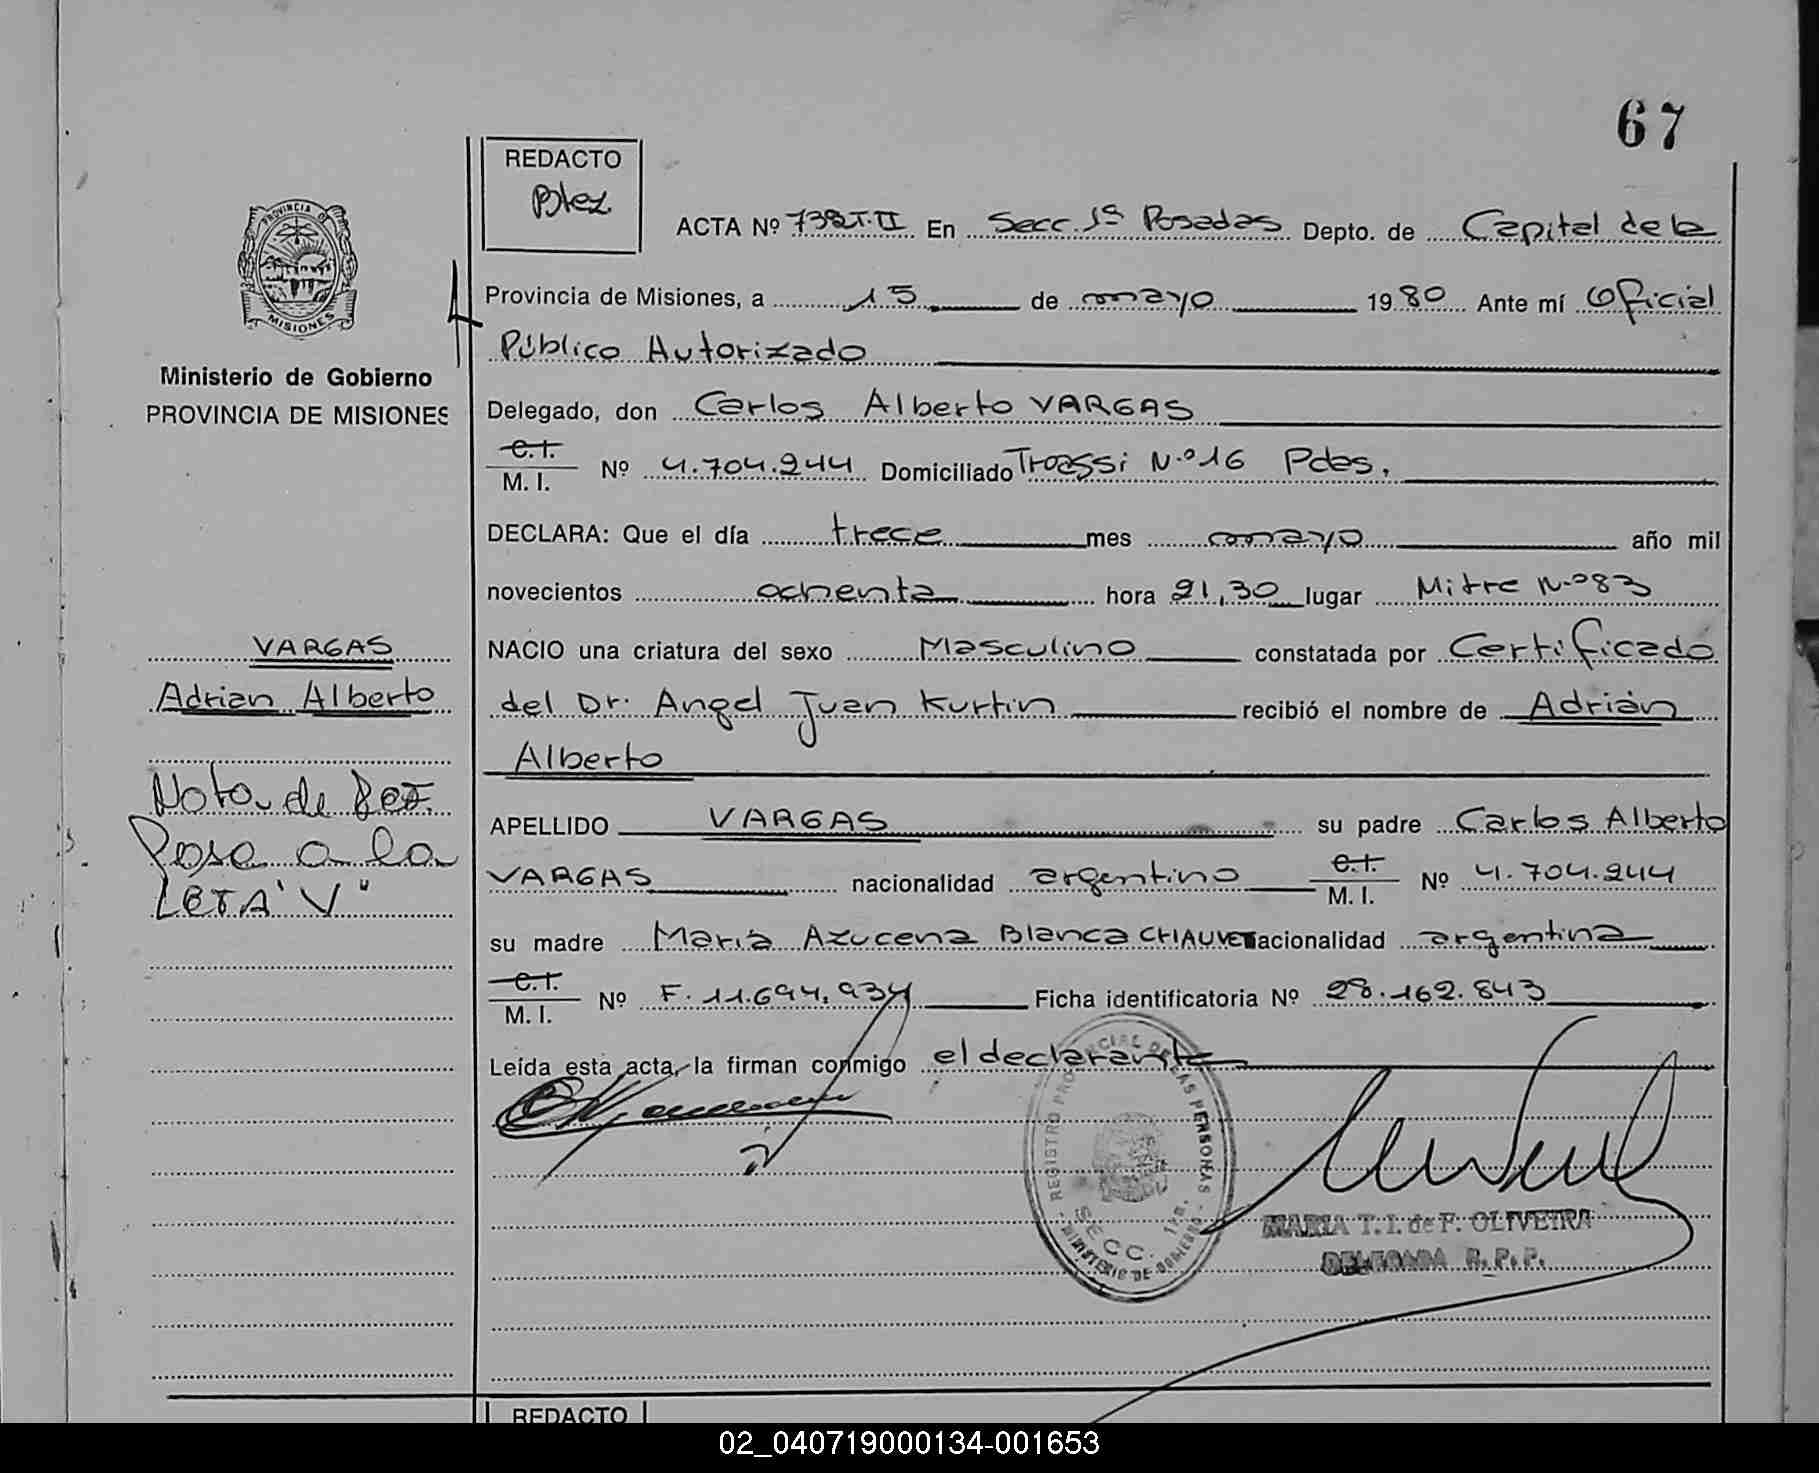 67
REDACTO
ACTA Nº 738 T. II En Secc. 1ª Posadas Depto. de Capital de la
PROVINCIA DE
MISIONES
Provincia de Misiones, a 15 de mayo 1980 Ante mí Oficial
Público Autorizado
Ministerio de Gobierno
PROVINCIA DE MISIONES
Delegado, don Carlos Alberto VARGAS
C.I.
M. I. Nº 4.704.244 Domiciliado N.º 16 Pdas.
DECLARA: Que el día trece mes mayo año mil
novecientos ochenta hora 21,30 lugar Mitre N.º 83
VARGAS
Adrian Alberto
NACIO una criatura del sexo Masculino constatada por Certificado
del Dr. Angel Juan Kurtin recibió el nombre de Adrián
Alberto
Nota de
Pasa a la
LETA "V"
APELLIDO VARGAS su padre Carlos Alberto
VARGAS nacionalidad argentino C.I.
M. I. Nº 4.704.244
su madre María Azucena Blanca CHAUVET nacionalidad argentina
C.I.
M. I. Nº F. 11.694.934 Ficha identificatoria Nº 28.162.843
Leída esta acta, la firman conmigo el declarante
REGISTRO PROVINCIAL DE LAS PERSONAS
SECC. 1ra.
MINISTERIO DE GOBIERNO
MARIA T. I. de F. OLIVEIRA
DELEGADA R. P. P.
REDACTO
02_040719000134-001653